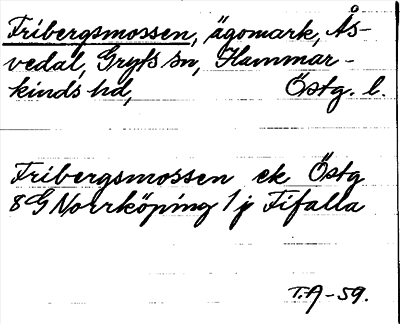 Fribergsmossen, ägomark, Ås-
vedal, Gryts sn, Hammar-
kinds hd, Östg. l.
Fribergsmossen ek Östg
8G Norrköping 1 j Fifalla
T.A-59.